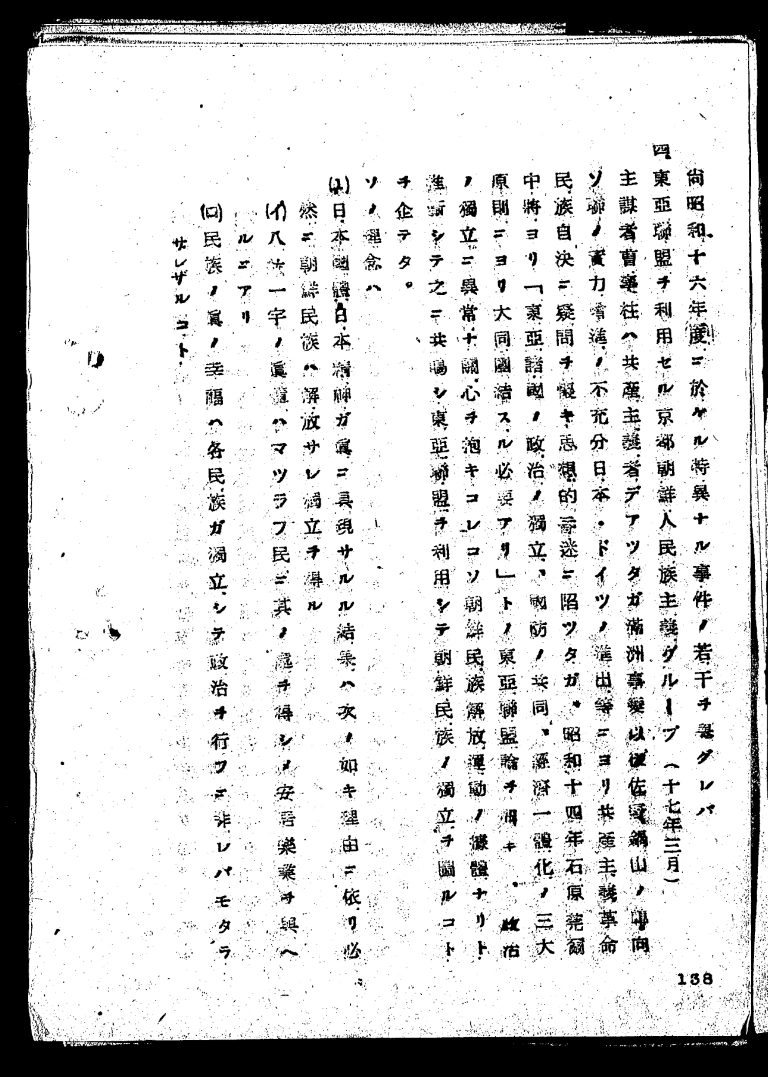 尚昭和十六年度ニ於ケル特異ナル事件ノ若干ヲ擧グレバ
四東亞聯盟ヲ利用セル京都朝鮮人民族主義グループ（十七年三月）
主謀者曹藥柱ハ共産主義者デアツタガ滿洲事變以後佐野鍋山ノ轉向
ソ聯ノ實力増進ノ不充分日本・ドイツノ進出等ニヨリ共産主義革命
民族自決ニ疑問ヲ懷キ思想的 迷ニ陷ツタガ、昭和十四年石原莞爾
中將ヨリ「東亞諸國ノ政治ノ獨立、國防ノ共同、經濟一體化ノ三大
原則ニヨリ大同團結スル必要アリ」トノ東亞聯盟論ヲ聞キ、政治
ノ獨立ニ異常ナ關心ヲ抱キコレコソ朝鮮民族解放運動ノ 體ナリト
 シテ之ニ共鳴シ東亞聯盟ヲ利用シテ朝鮮民族ノ獨立ヲ圖ルコト
ヲ企テタ。
ソノ理念ハ
(1)日本國體日本精神ガ眞ニ具現サルル結果ハ次ノ如キ理由ニ依リ必
然ニ朝鮮民族ハ解放サレ獨立ヲ得ル
(イ)八紘一宇ノ眞義ハマツラフ民ニ其ノ處ヲ得シメ安居樂業ヲ與ヘ
ルニアリ
(ロ)民族ノ眞ノ幸福ハ各民族ガ獨立シテ政治ヲ行フニ非レバモタラ
サレザルコト
138